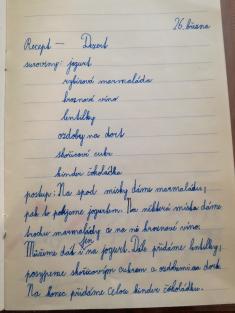 26. března
Recept — Dezert
suroviny: jogurt
rybízová marmaláda
hroznové víno
lentilky
ozdoby na dort
skořicový cukr
kinder čokoládka
postup: Na spod misky dáme marmaládu,
pak to polijeme jogurtem. Na některé místa dáme
trochu marmalády a na ně hroznové víno.
Můžeme dát i jen na jogurt. Dále přidáme lentilky,
posypeme skořicovým cukrem a ozdobíme dort.
Na konec přidáme celou kinder čokoládku.